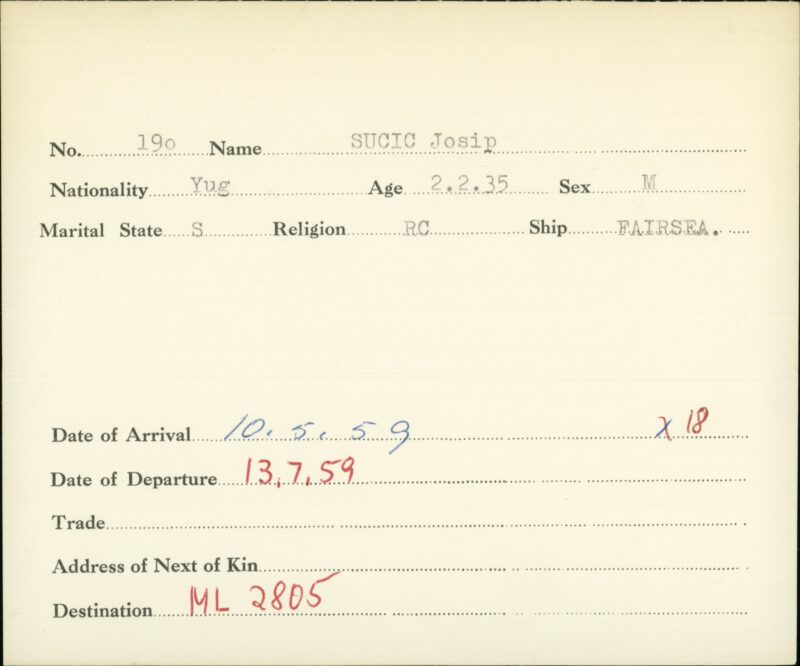 No. 19o Name SUCIC Josip
Nationality Yug Age 2.2.35 Sex M
Marital State S Religion RC Ship FAIRSEA.
Date of Arrival 10.5.59 X 18
Date of Departure 13.7.59
Trade
Address of Next of Kin
Destination ML 2805